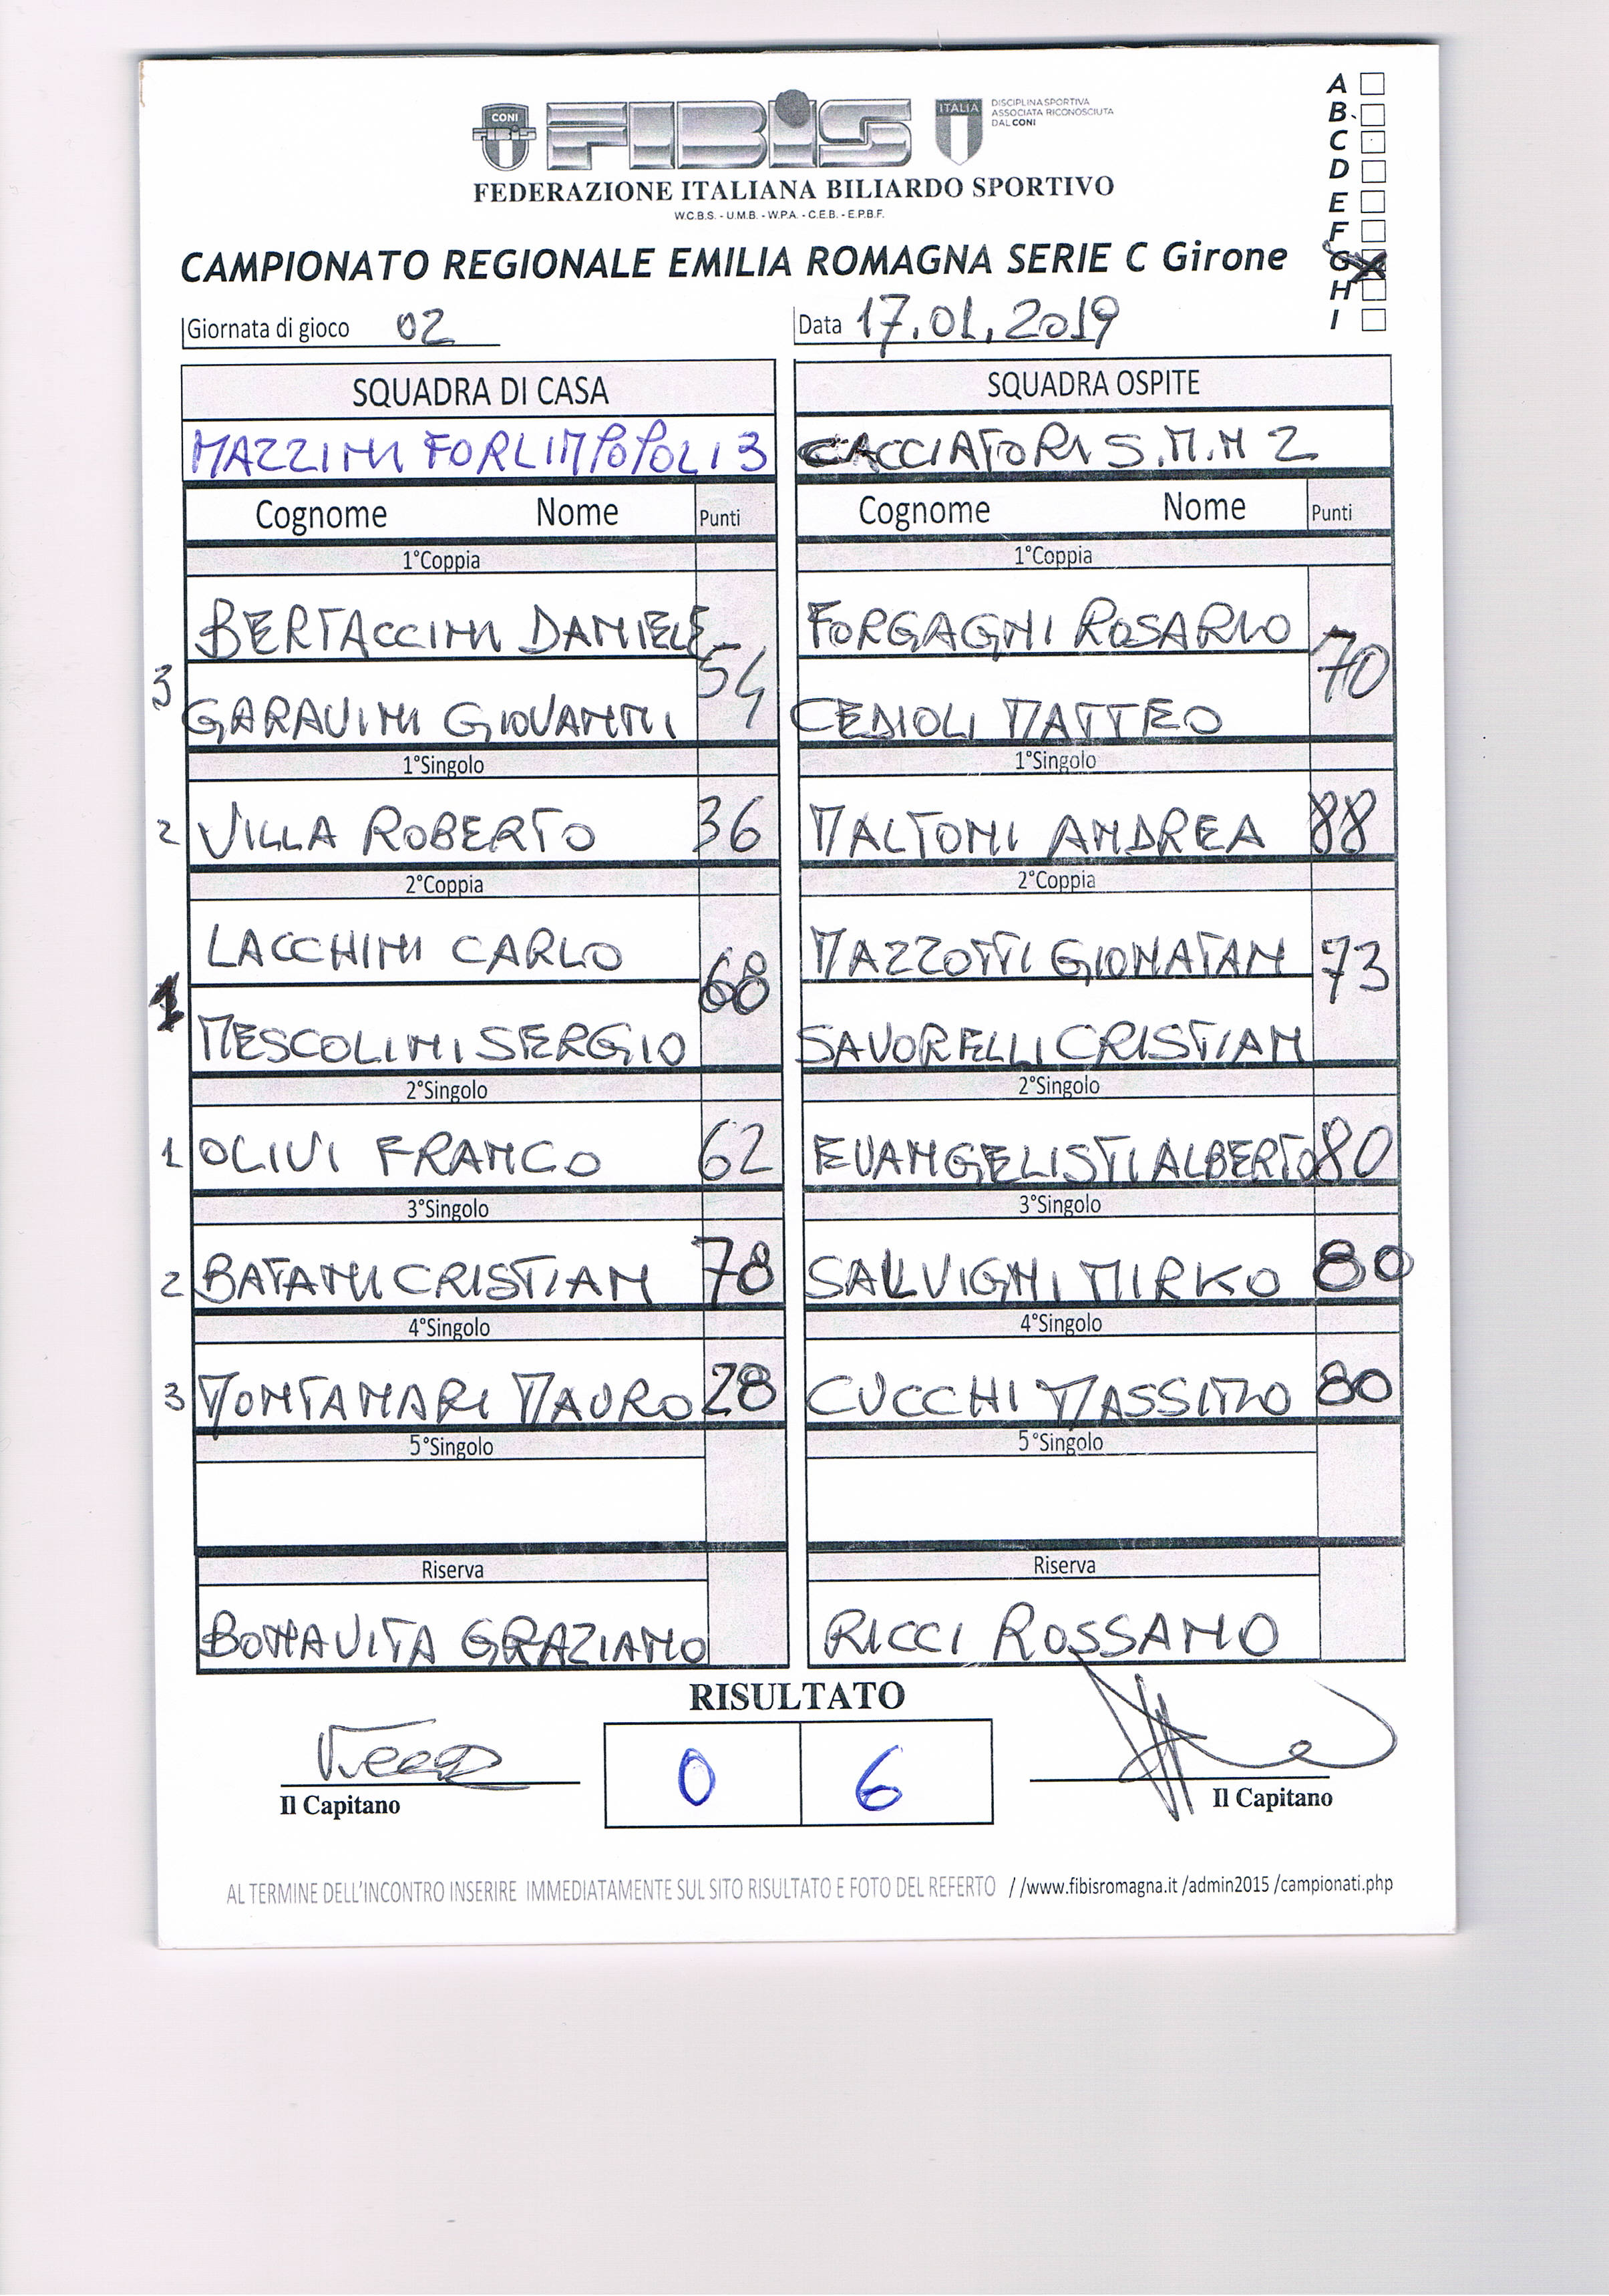 A
B
C
D
E
F
G
H
I
CONI
FIBIS
FIBIS
ITALIA
DISCIPLINA SPORTIVA
ASSOCIATA RICONOSCIUTA
DAL CONI
FEDERAZIONE ITALIANA BILIARDO SPORTIVO
W.C.B.S. - U.M.B. - W.P.A. - C.E.B. - E.P.B.F.
CAMPIONATO REGIONALE EMILIA ROMAGNA SERIE C Girone
Giornata di gioco 02 Data 17.01.2019
SQUADRA DI CASA SQUADRA OSPITE
MAZZINI FORLIMPOPOLI 3 CACCIATORI S.M.N 2
Cognome Nome Punti Cognome Nome Punti
1°Coppia 1°Coppia
BERTACCINI DANIELE FORGAGNI ROSARIO
3 54 70
GARAVINI GIOVANNI CEDIOLI MATTEO
1°Singolo 1°Singolo
2 VILLA ROBERTO 36 MALTONI ANDREA 88
2°Coppia 2°Coppia
LACCHINI CARLO MAZZOTTI GIONATAN
1 68 73
MESCOLINI SERGIO SAVORELLI CRISTIAN
2°Singolo 2°Singolo
1 OLIVI FRANCO 62 EVANGELISTI ALBERTO 80
3°Singolo 3°Singolo
2 BATANI CRISTIAN 78 SALVIGNI MIRKO 80
4°Singolo 4°Singolo
3 MONTANARI MAURO 28 CUCCHI MASSIMO 80
5°Singolo 5°Singolo
Riserva Riserva
BONAVITA GRAZIANO RICCI ROSSANO
RISULTATO
0 6
Il Capitano Il Capitano
AL TERMINE DELL'INCONTRO INSERIRE IMMEDIATAMENTE SUL SITO RISULTATO E FOTO DEL REFERTO //www.fibisromagna.it /admin2015 /campionati.php